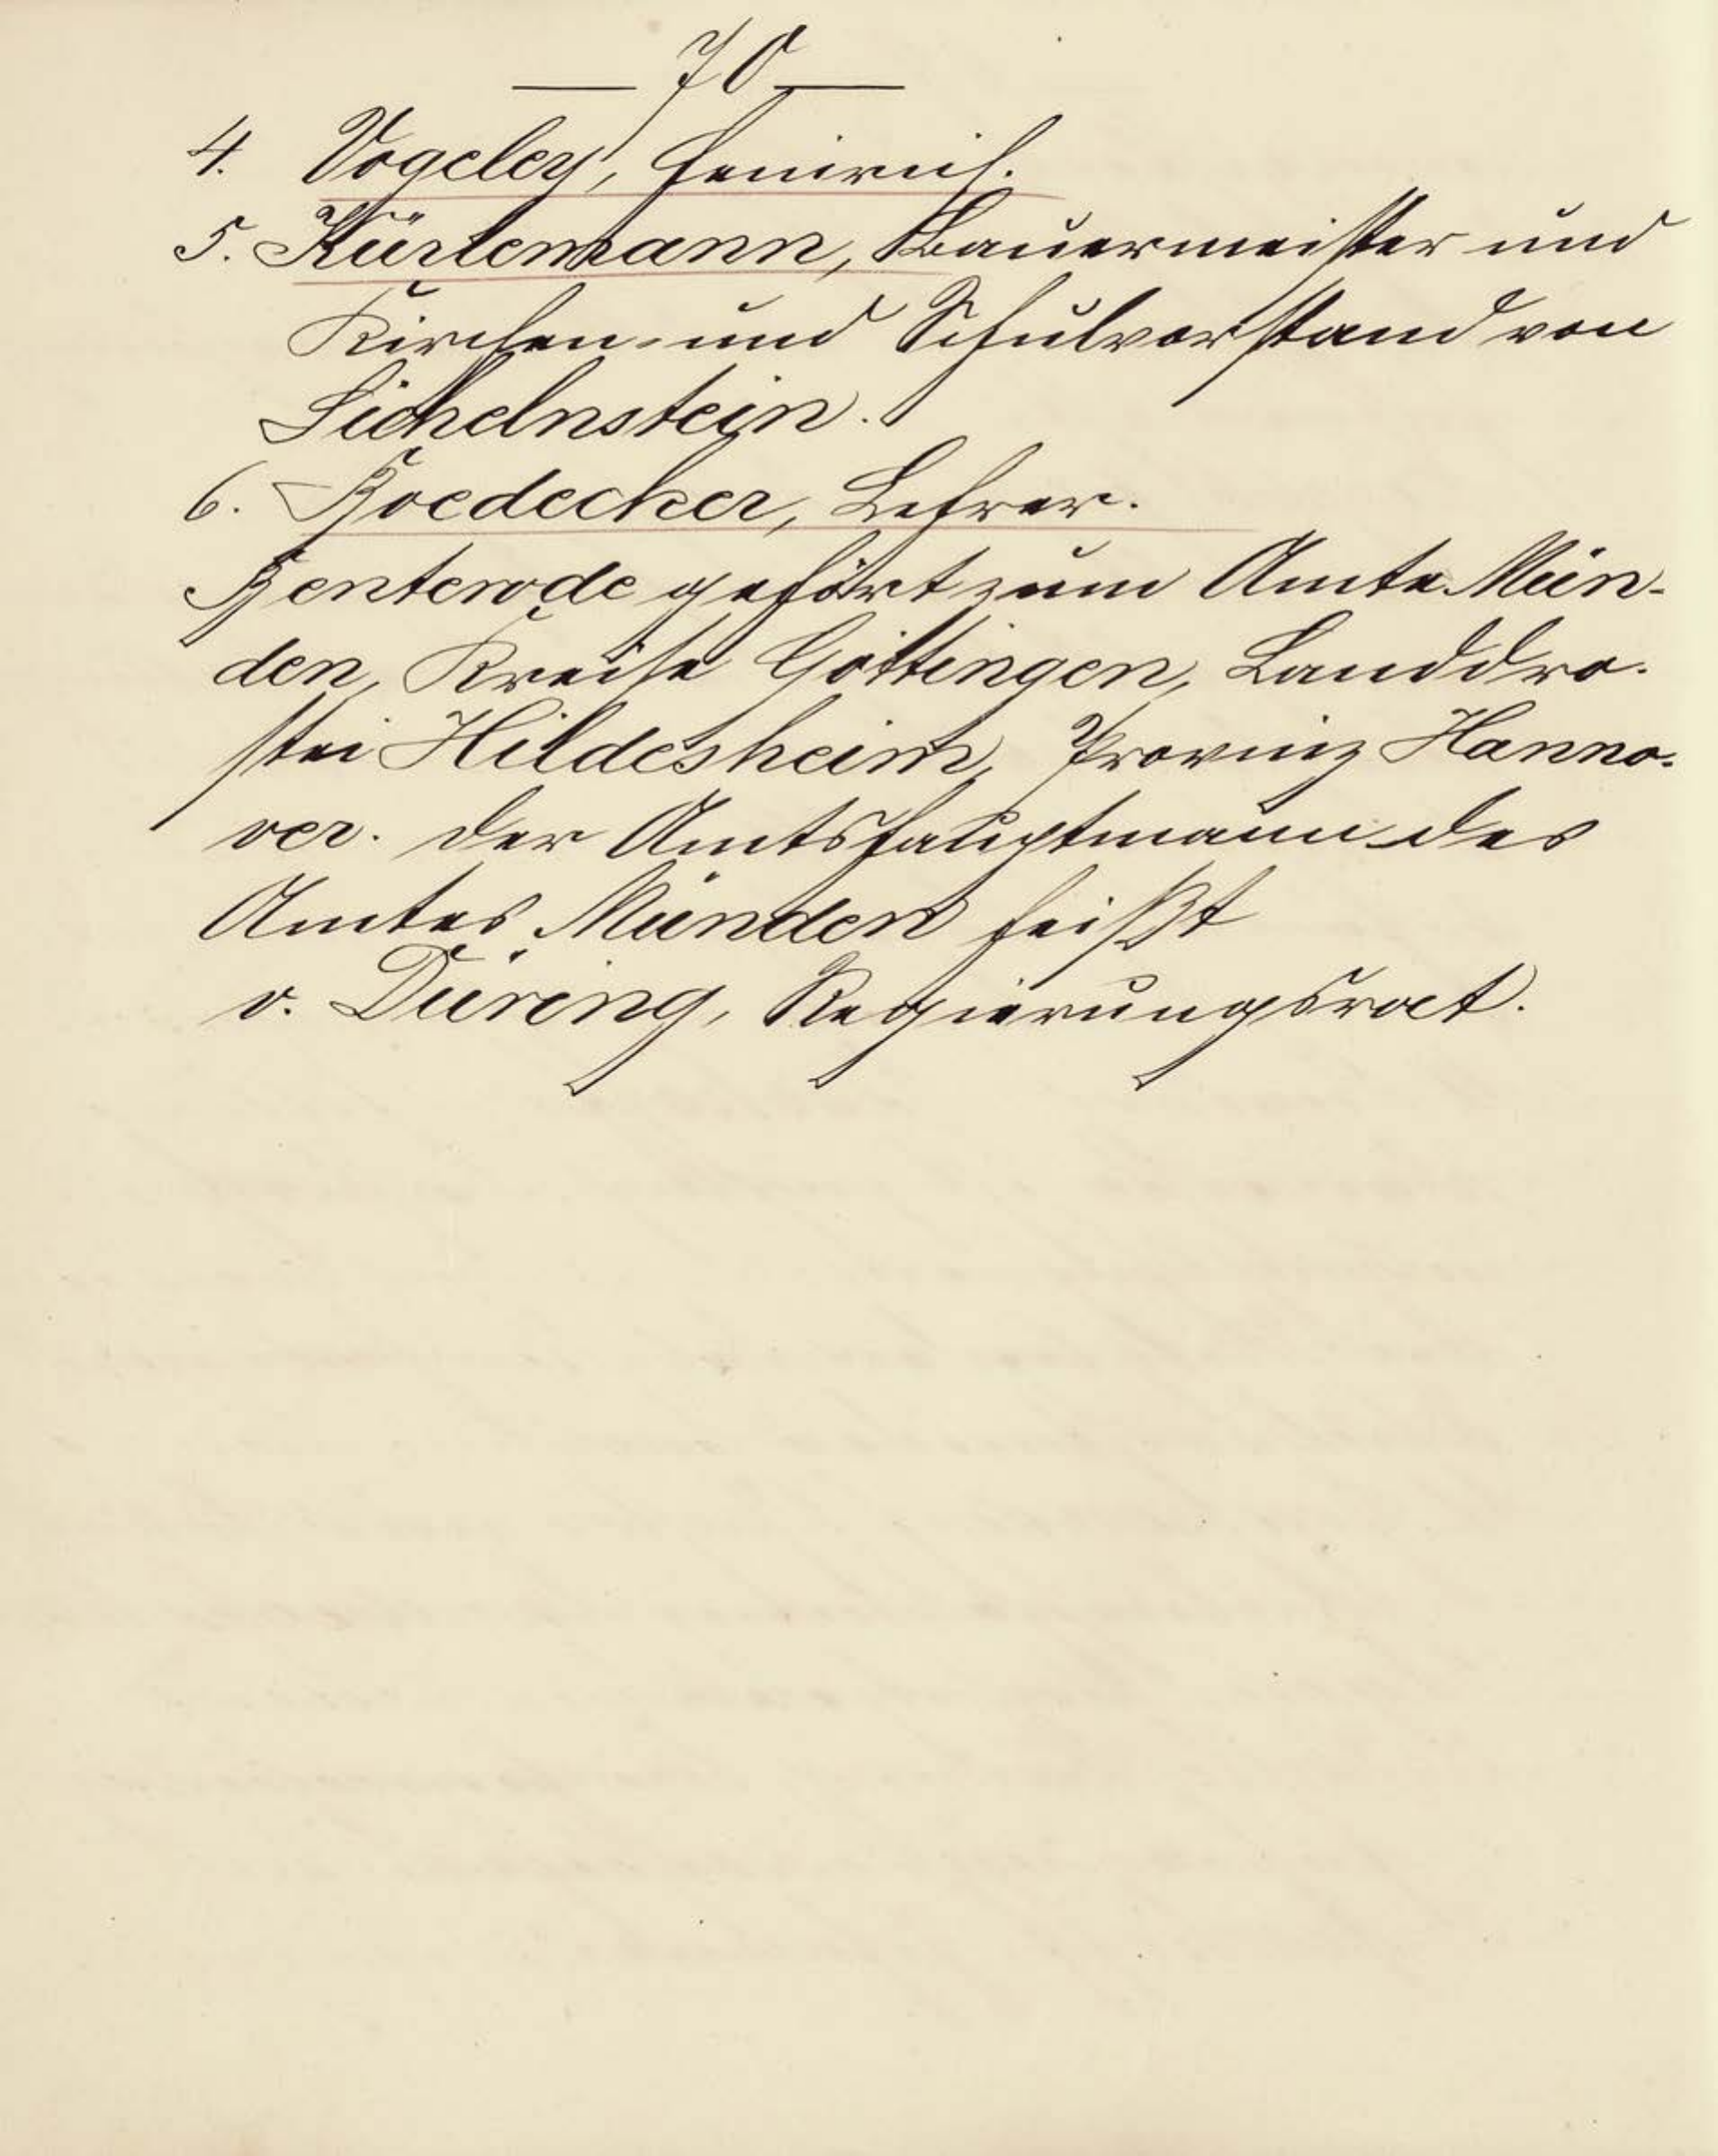 — 70 —
4. Vogeley, Heinrich.
5. Kürlemann, Bauermeister und
Kirchen- und Schulvorstand von
Sichelnstein.
6. Boedecker, Lehrer.
Benterode gehört zum Amte Mün-
den, Kreise Göttingen, Landdro-
stei Hildesheim, Provinz Hanno-
ver. Der Amtshauptmann des
Amtes Münden heißt
v. Düring, Regierungsrat.